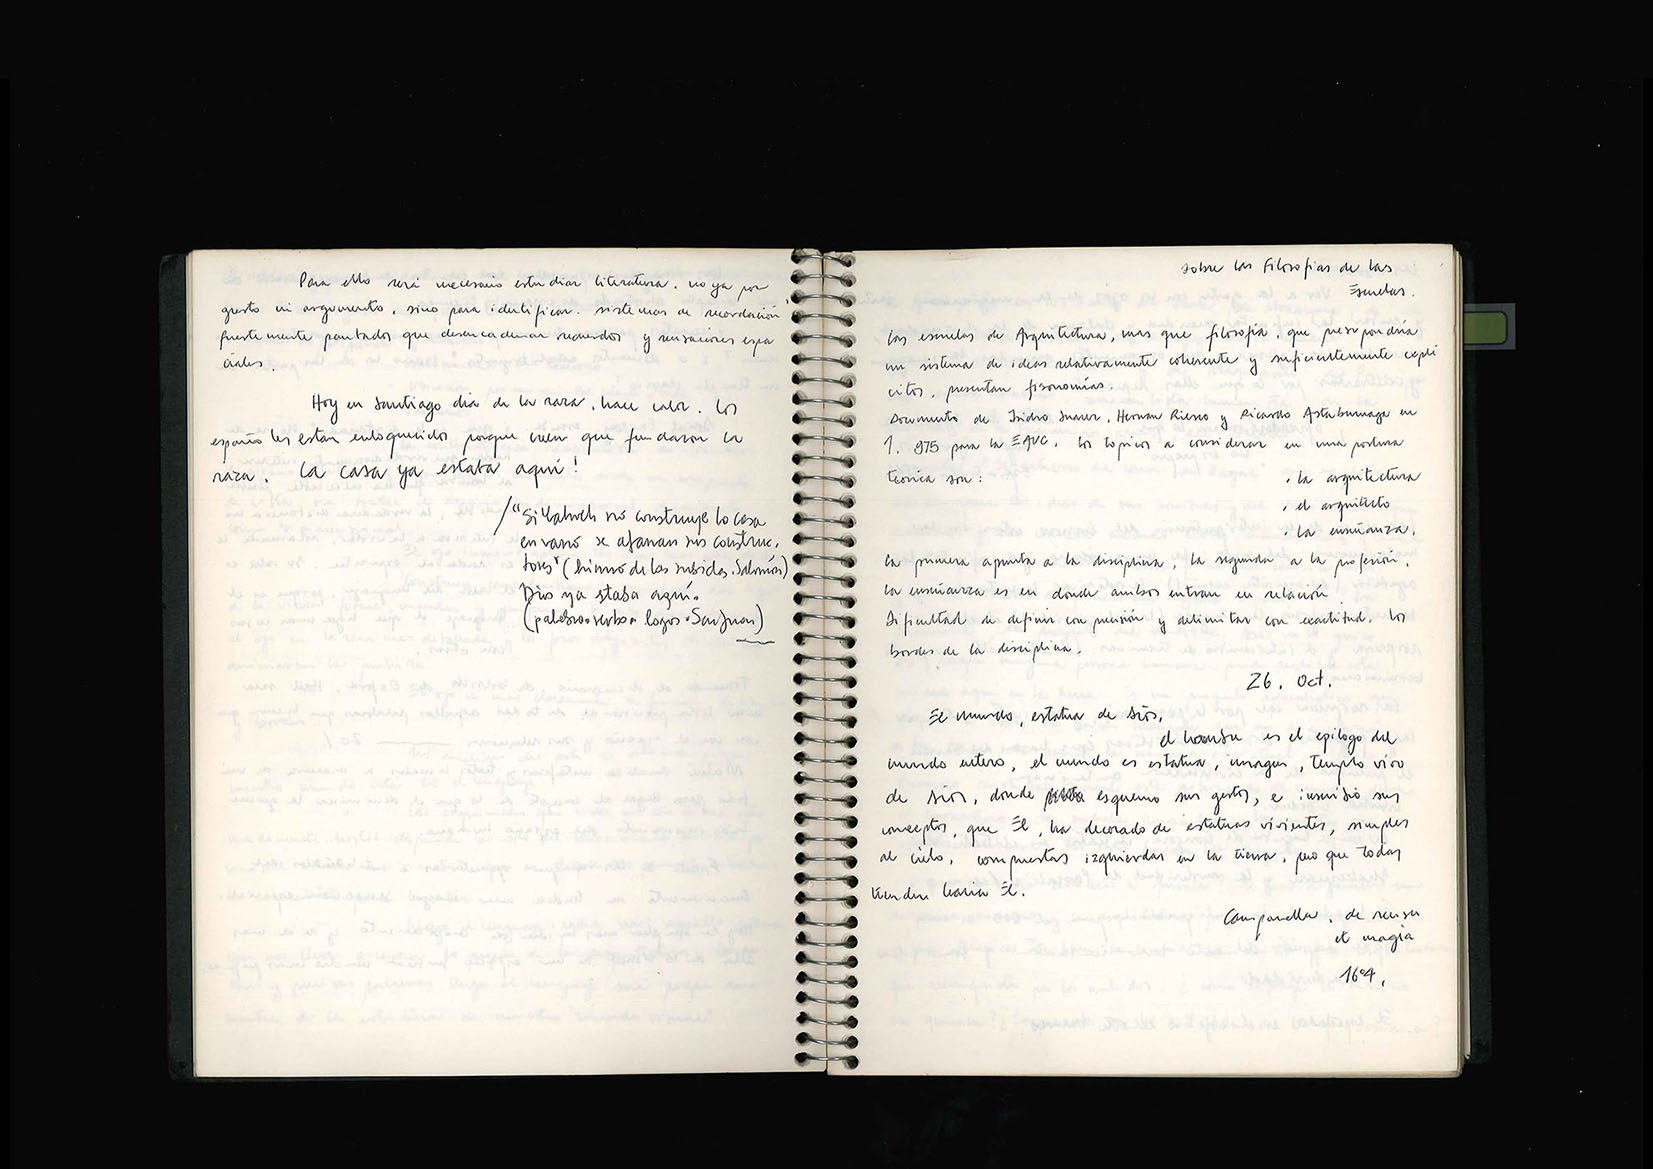 Para ello será necesario estudiar literatura. no ya por
gusto ni argumento, sino para identificar sistemas de recordación
fuertemente pautados que desencadenan recuerdos y sensaciones espa
ciales.
Hoy en Santiago dia de la raza, hace calor. los
españoles estan enloquecidos porque creen que fundaron la
raza. La casa ya estaba aqui!
/"Si Yahveh no construye la casa
en vano se afanan sus construc.
tores" (himno de las subidas. Salomón)
Dios ya estaba aquí.
(palabra = verbo = logos = San Juan)
sobre las Filosofias de las
Escuelas.
Las escuelas de Arquitectura, mas que filosofía, que presupondría
un sistema de ideas relativamente coherente y suficientemente explí
citos, presentan fisonomías.
Documento de Isidro Suarez, Hernan Riesco y Ricardo Astaburuaga en
1.975 para la EAUC. los topicos a considerar en una postura
teorica son:
. la arquitectura
. el arquitecto
. la enseñanza.
la primera apunta a la disciplina, la segunda a la profesión,
la enseñanza es en donde ambos entran en relación
Dificultad de definir con precisión y delimitar con exactitud, los
bordes de la disciplina.
26. Oct.
El mundo, estatua de Dios,
el hombre es el epílogo del
mundo entero, el mundo es estatua, imagen, templo vivo
de Dios, donde sus gestos, e inscribió sus
conceptos, que Él, ha decorado de estatuas vivientes, simples
al cielo, compuestas izquierdas en la tierra, pero que todas
tienden hacia Él.
Campanella. de sensu
et magia
1604.